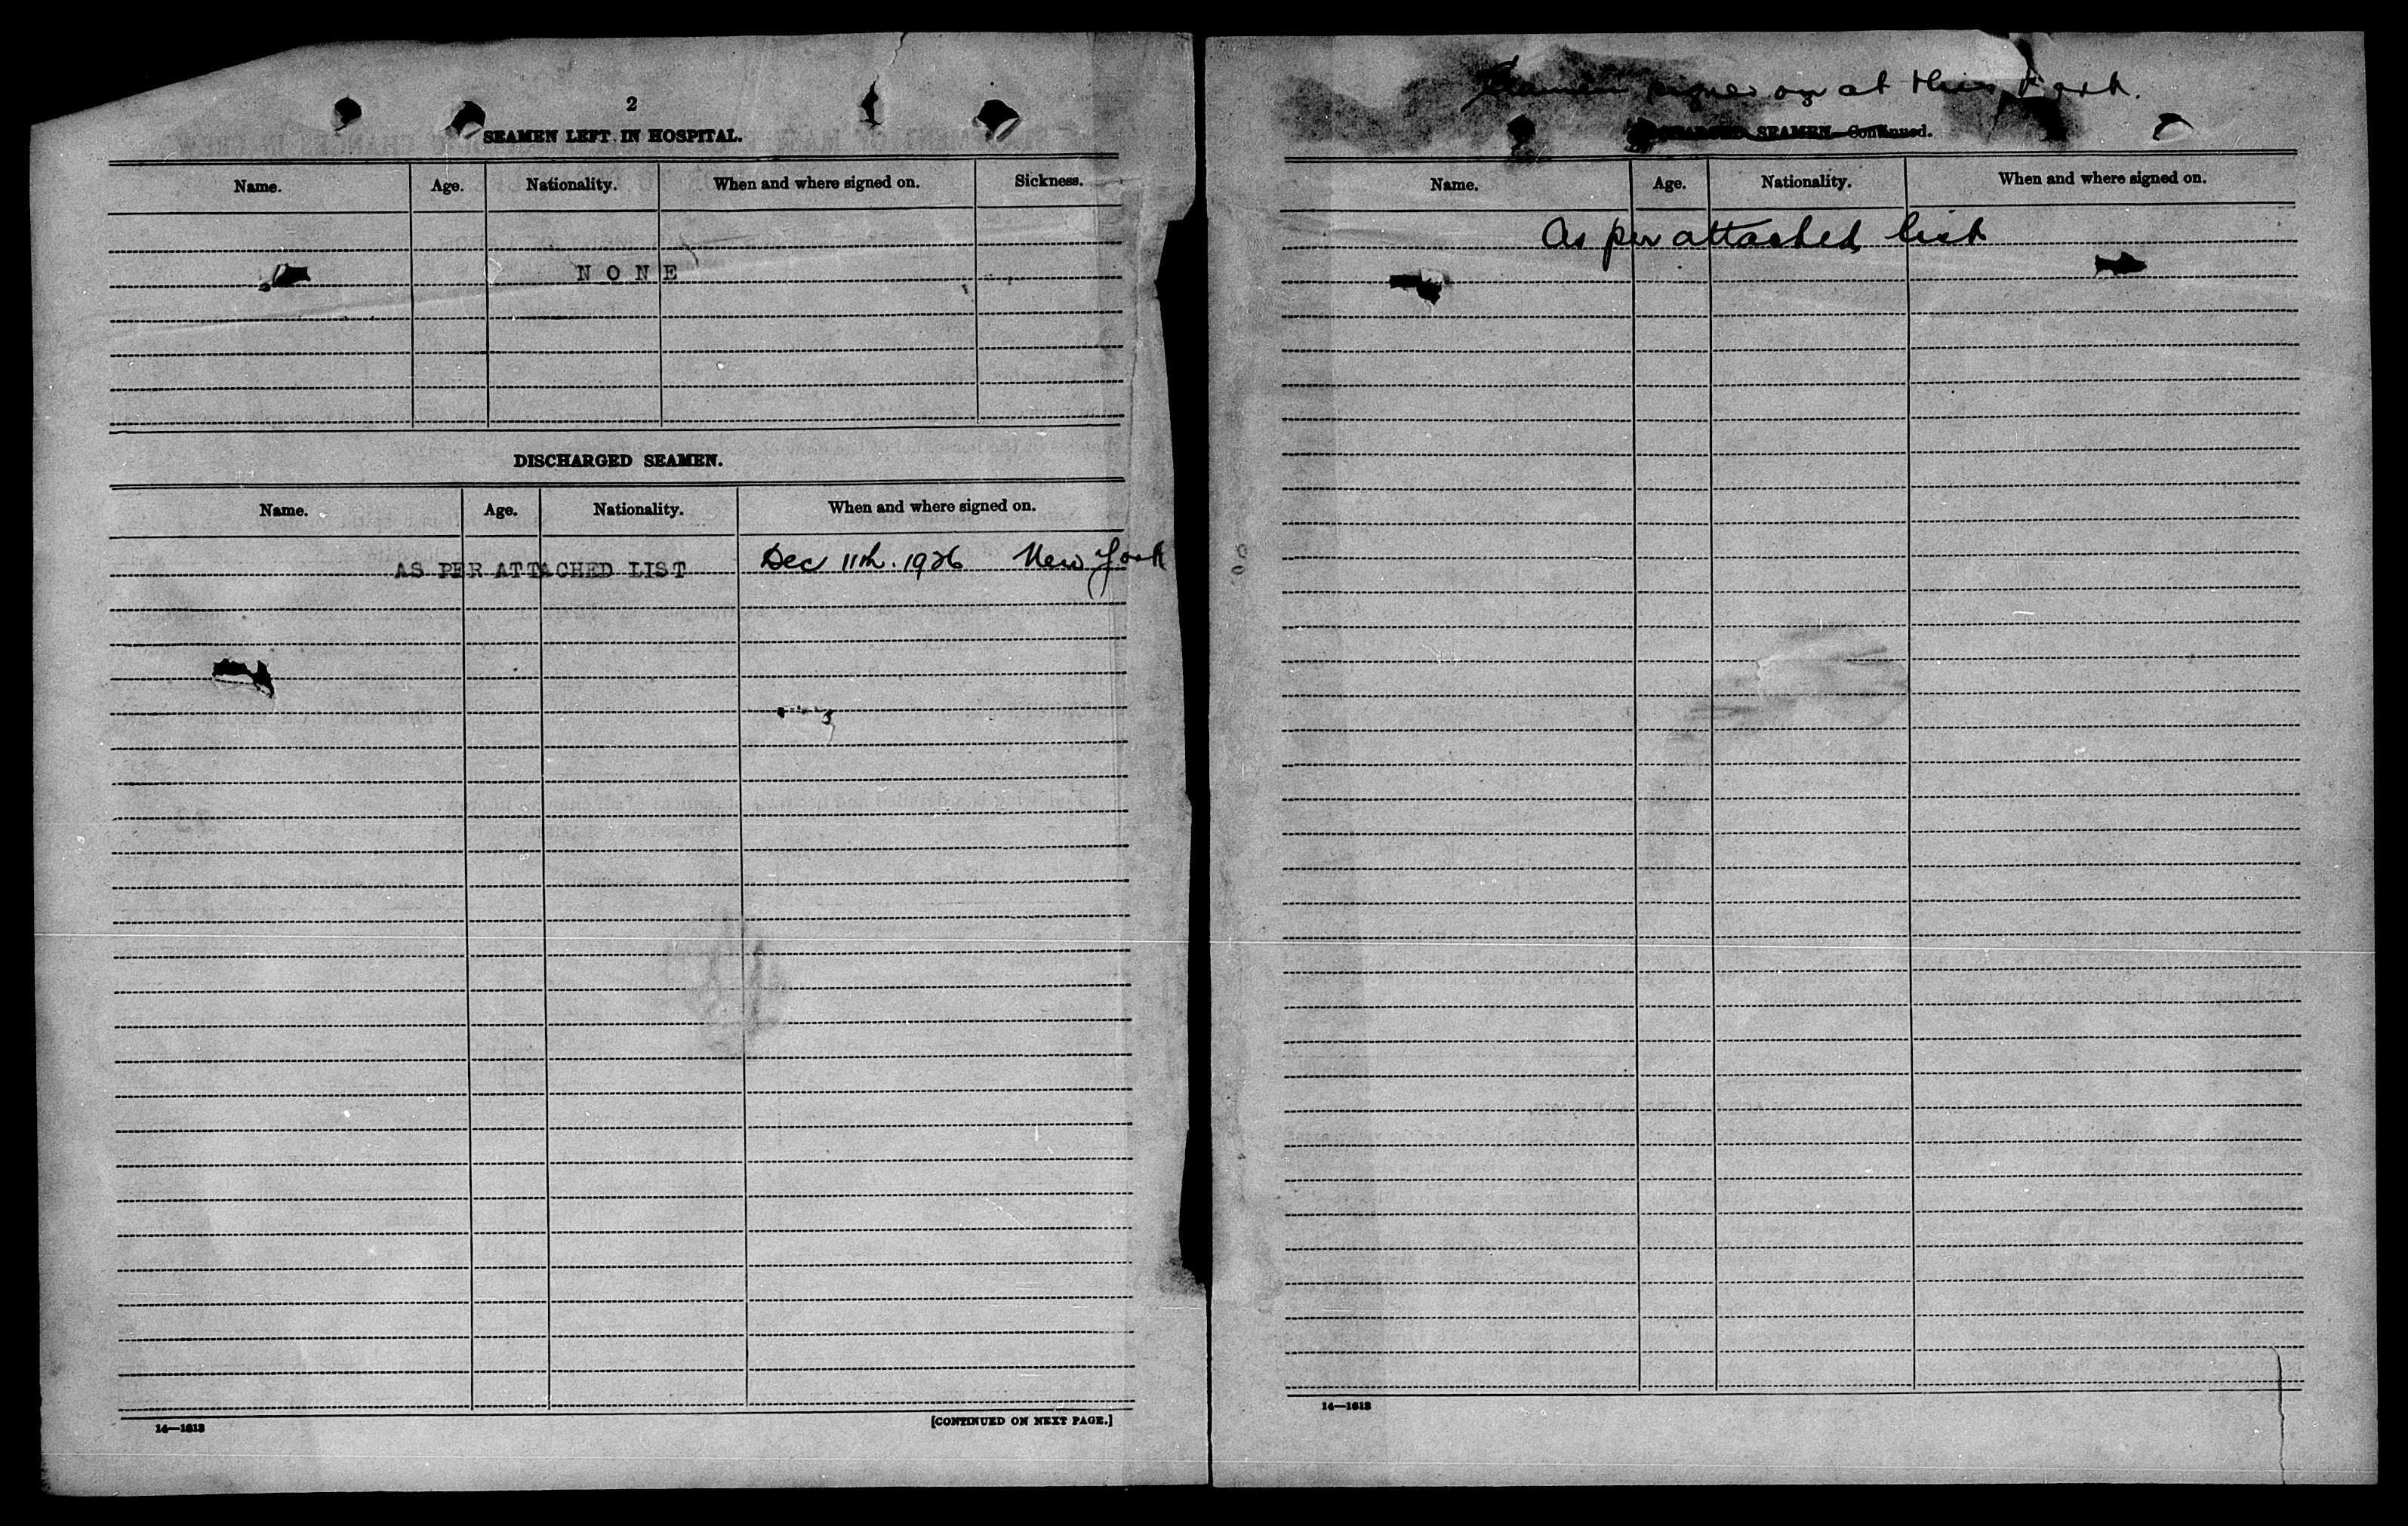 2
SEAMEN LEFT IN HOSPITAL.
Name. Age. Nationality. When and where signed on. Sickness.
NONE
DISCHARGED SEAMEN.
Name. Age. Nationality. When and where signed on.
AS PER ATTACHED LIST Dec 11th. 1926 New York
14—1613
[CONTINUED ON NEXT PAGE.]
Seamen signed on at this Port.
DISCHARGED SEAMEN—Continued.
Name. Age. Nationality. When and where signed on.
As per attached list
14—1613